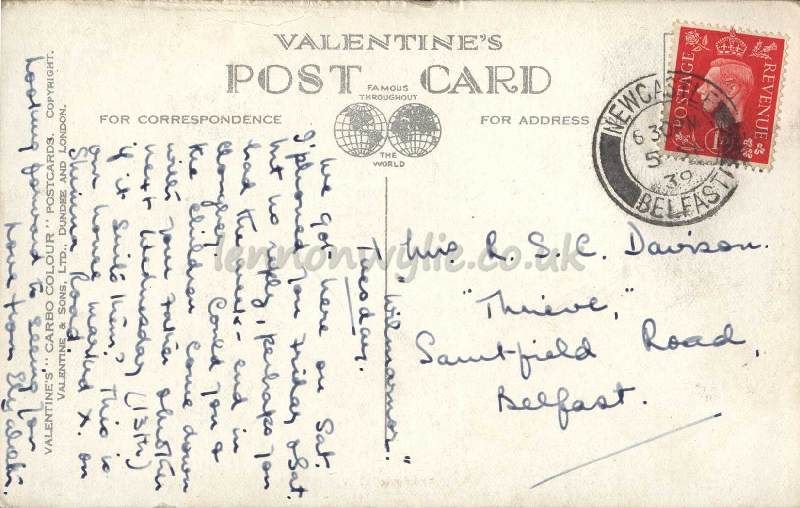 VALENTINE'S
POST CARD
FAMOUS
THROUGHOUT
THE
WORLD
FOR CORRESPONDENCE
FOR ADDRESS
POSTAGE
REVENUE
NEWCASTLE
6 30 PM
5
39
BELFAST
VALENTINE'S "CARBO COLOUR" POSTCARDS. COPYRIGHT.
VALENTINE & SONS, LTD., DUNDEE AND LONDON.
"Wilmarnor."
Tuesday.
We got here on Sat.
I 'phoned you Friday & Sat.
but no reply, perhaps you
had the week-end in
Cloughey. Could you &
the children come down
with your father
next Wednesday (13th)
if it suits him, this is
our house marked X. on
Shimna Road.
Looking forward to seeing you
Love from
Mrs. R. S. C. Davison.
"Thrieve,"
Saintfield Road,
Belfast.
lennonwylie.co.uk